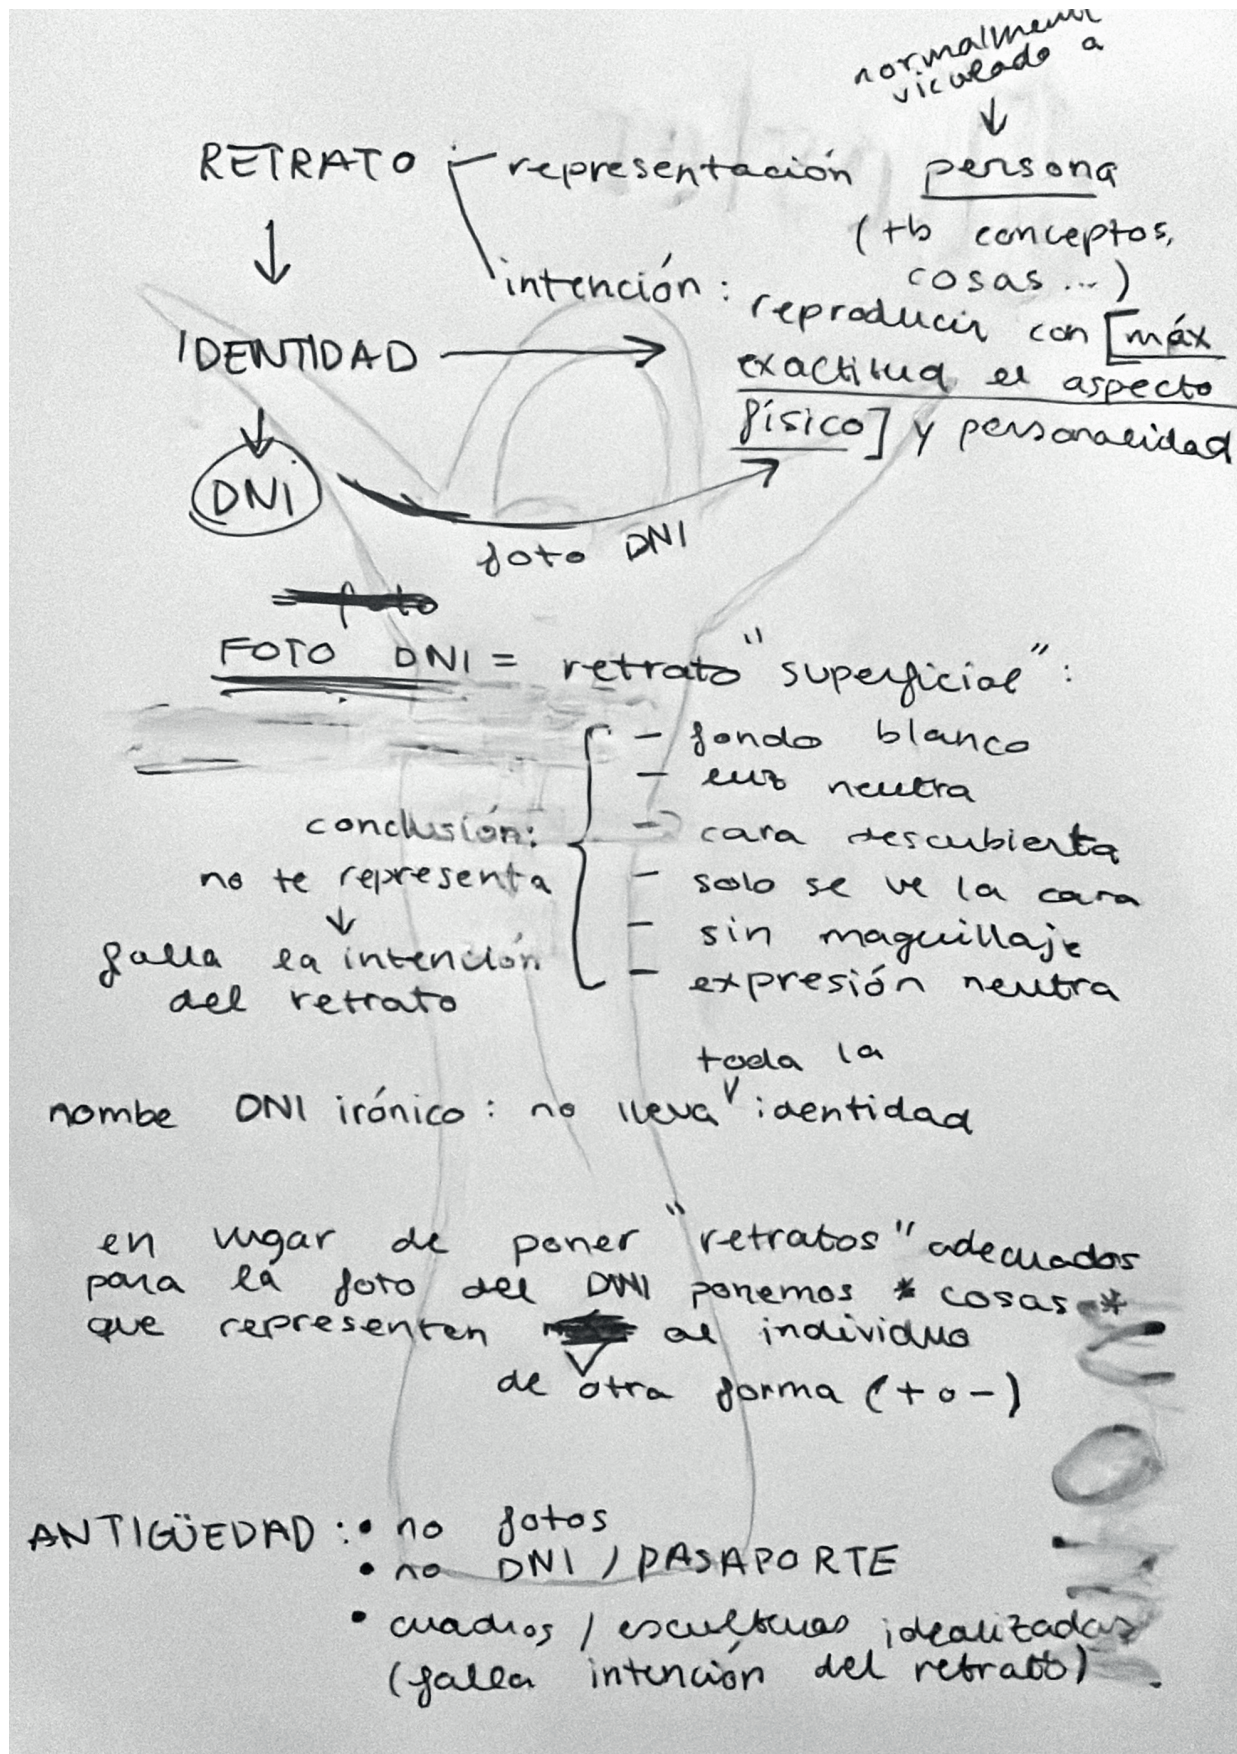 normalment
viculado a
RETRATO representación persona
(tb conceptos,
cosas...)
intención: reproducir con [máx
IDENTIDAD exactitud el aspecto
físico] y personalidad
DNI
foto DNI
foto
FOTO DNI = retrato "superficial":
- fondo blanco
- luz neutra
conclusión: - cara descubierta
no te representa - solo se ve la cara
- sin maquillaje
falla la intención - expresión neutra
del retrato
toda la
nombe DNI irónico: no lleva identidad
en lugar de poner "retratos" adecuados
para la foto del DNI ponemos * cosas *
que representen al individuo
de otra forma (+ o -)
ANTIGÜEDAD: • no fotos
• no DNI / PASAPORTE
• cuadros / esculturas idealizadas
(falla intención del retrato)